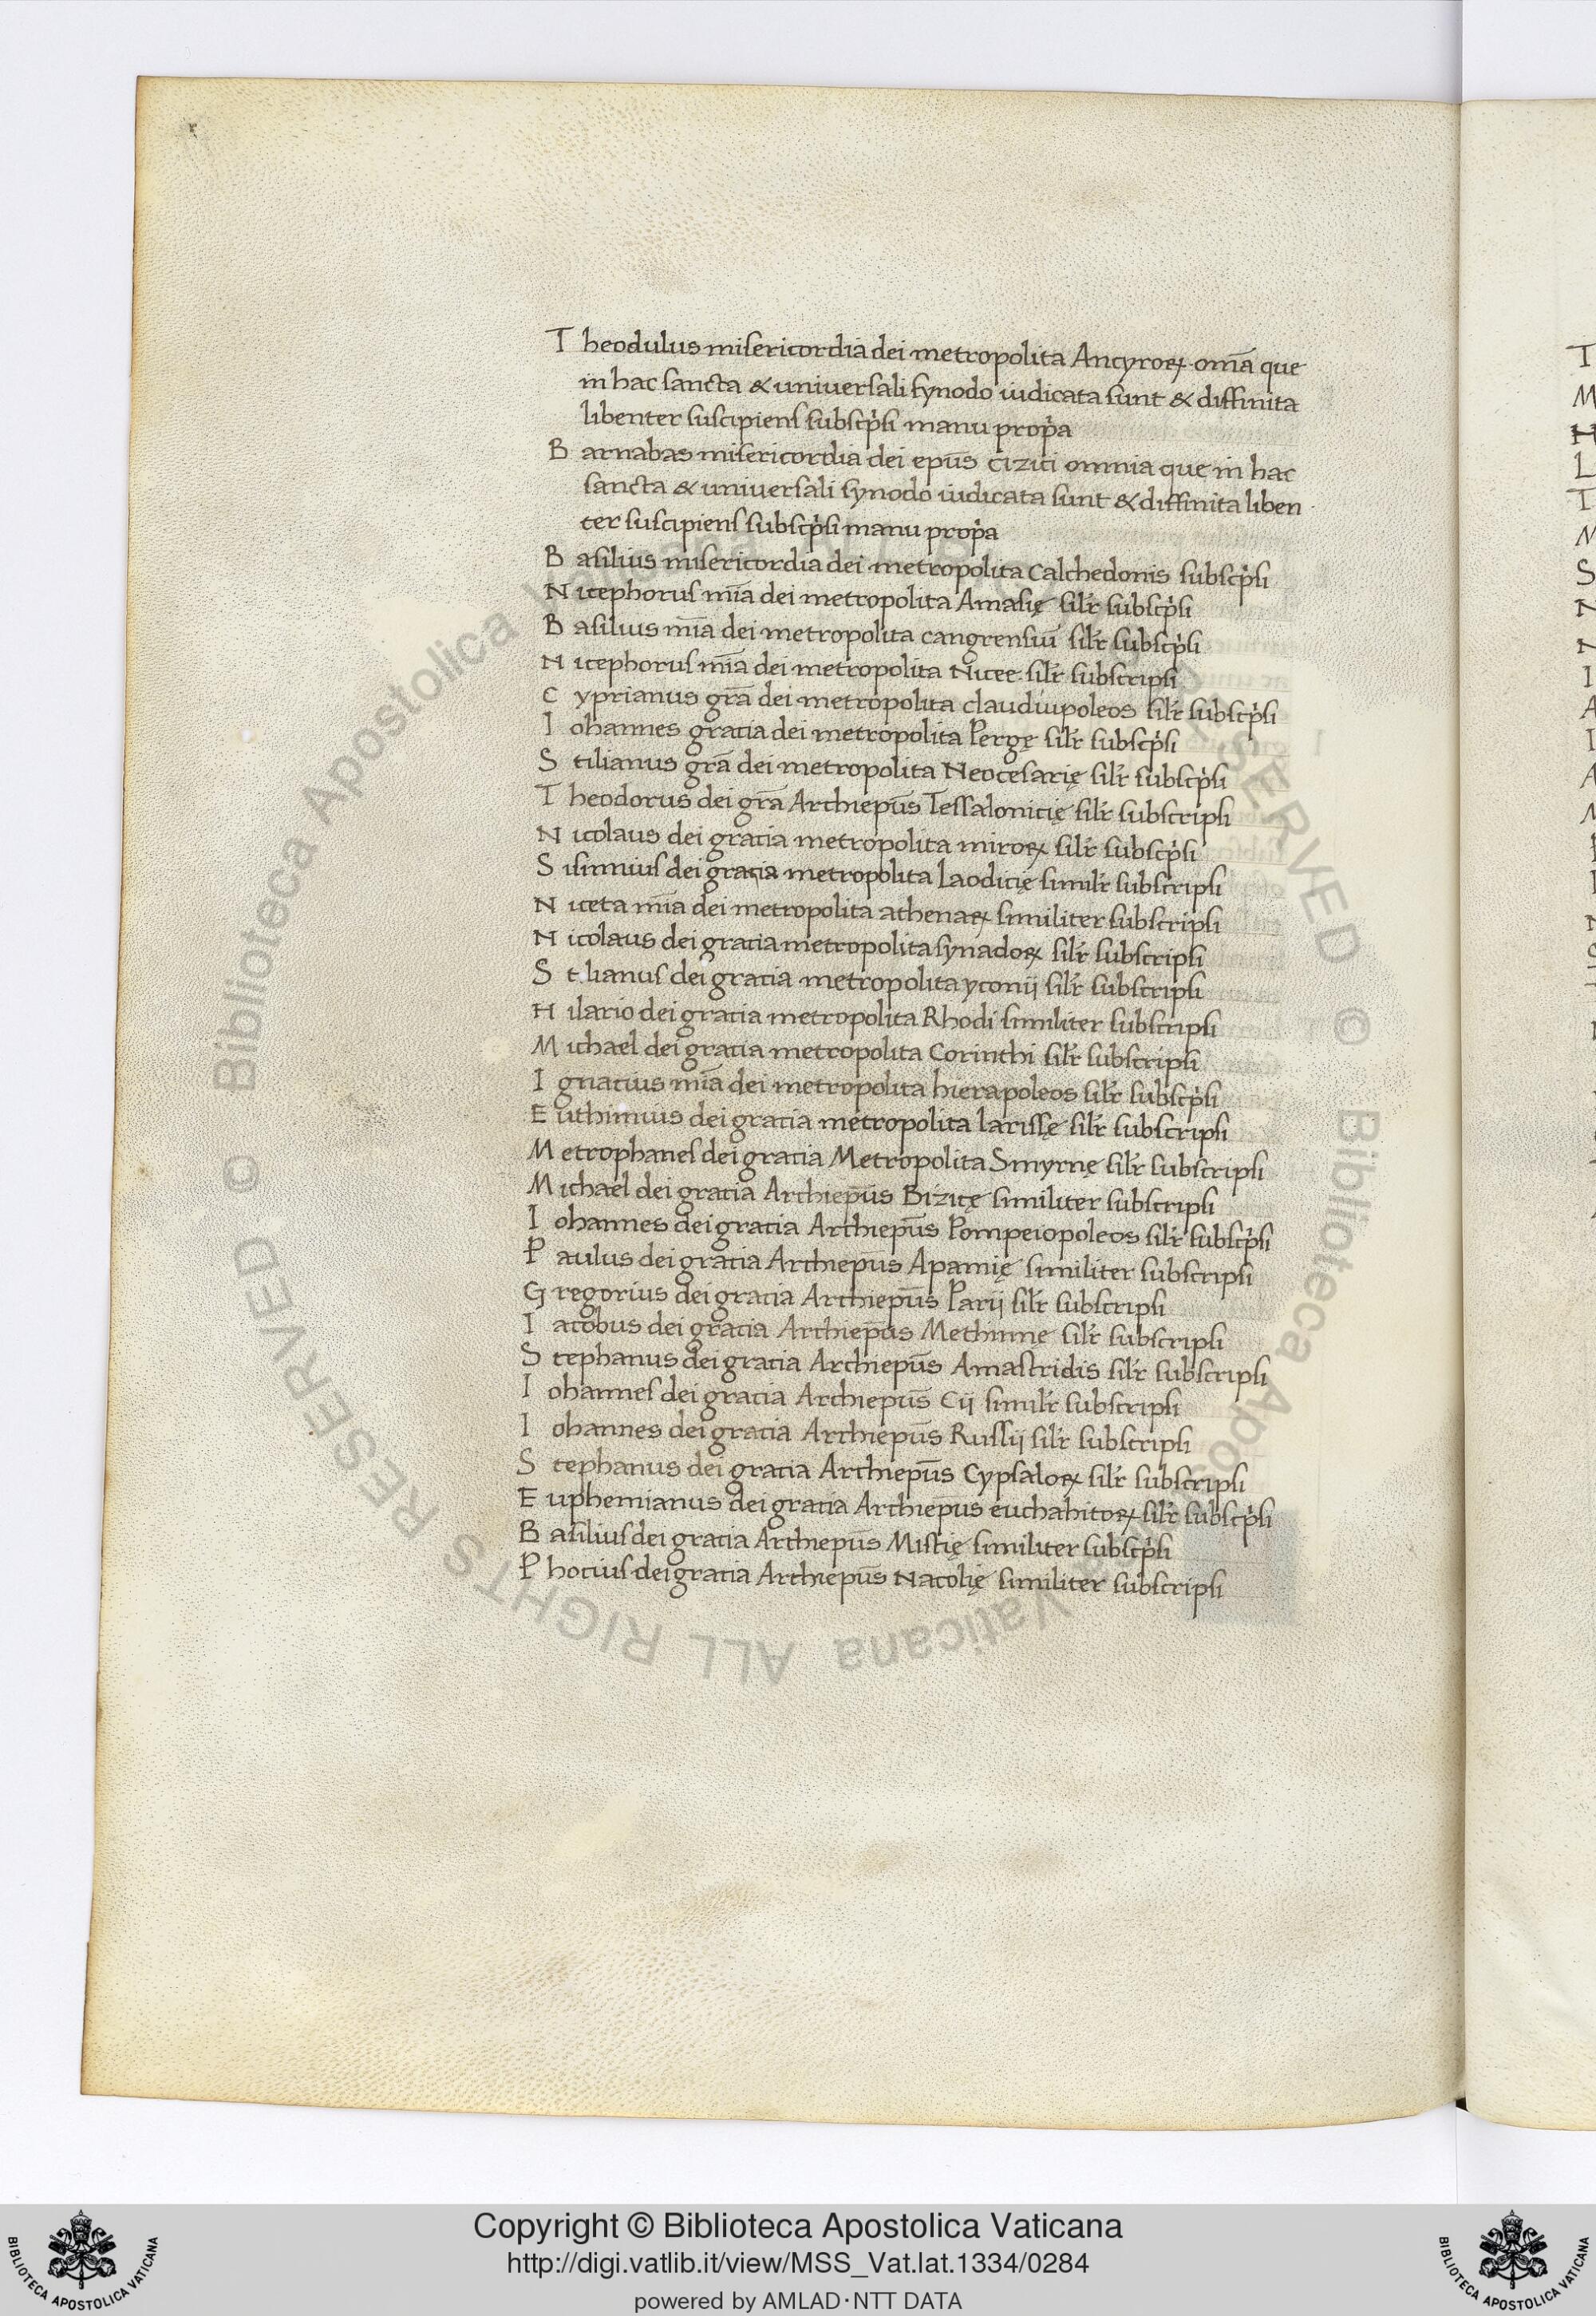 Theodulus misericordia dei metropolita Ancyroꝝ. om̄a que
in hac sancta & universali synodo iudicata sunt & diffinita
libenter suscipiens subscp̓si manu prop̓a
Barnabas misericordia dei ep̄us cizici omnia que in hac
sancta & universali synodo iudicata sunt & diffinita liben
ter suscipiens subscp̓si manu prop̓a
Basilius misericordia dei metropolita calchedonis subscp̓si
Nicephorus mīa dei metropolita Amasię silr̄ subscp̓si
Basilius mīa dei metropolita cangrensiū silr̄ subscp̓si
Nicephorus mīa dei metropolita Nicee silr̄ subscripsi
Cyprianus gr̄a dei metropolita claudiupoleos silr̄ subscp̓si
Iohannes gracia dei metropolita Pergę silr̄ subscp̓si
Stilianus gr̄a dei metropolita Neocesarię silr̄ subscp̓si
Theodorus dei gr̄a Archiep̄us Tessalonicię silr̄ subscripsi
Nicolaus dei gracia metropolita miroꝝ silr̄ subscp̓si
Sisinnius dei gracia metropolita Laodicię similr̄ subscripsi
Niceta mīa dei metropolita athenaꝝ similiter subscripsi
Nicolaus dei gracia metropolita synadoꝝ silr̄ subscripsi
Stilianus dei gracia metropolita yconij silr̄ subscripsi
Hilario dei gracia metropolita Rhodi similiter subscripsi
Michael dei gracia metropolita Corinthi silr̄ subscripsi
Ignacius mīa dei metropolita hierapoleos silr̄ subscp̓si
Euthimius dei gracia metropolita larissę silr̄ subscripsi
Metrophanes dei gracia Metropolita Smyrnę silr̄ subscripsi
Michael dei gracia Archiep̄us Bizicę similiter subscripsi
Iohannes dei gracia Archiep̄us Pompeiopoleos silr̄ subscp̓si
Paulus dei gracia Archiep̄us Apamię similiter subscripsi
Gregorius dei gracia Archiep̄us Parij silr̄ subscripsi
Iacobus dei gracia Archiep̄us Methinne silr̄ subscripsi
Stephanus dei gracia Archiep̄us Amastridis silr̄ subscripsi
Iohannes dei gracia Archiep̄us Cij similr̄ subscripsi
Iohannes dei gracia Archiep̄us Russij silr̄ subscripsi
Stephanus dei gracia Archiep̄us Cypsaloꝝ silr̄ subscripsi
Euphemianus dei gracia Archiep̄us euchahitoꝝ silr̄ subscp̓si
Basilius dei gracia Archiep̄us Mistię similiter subscp̓si
Phocius dei gracia Archiep̄us Nacolię similiter subscripsi
© Biblioteca Apostolica Vaticana ALL RIGHTS RESERVED
© Biblioteca Apostolica Vaticana ALL RIGHTS RESERVED
Copyright © Biblioteca Apostolica Vaticana
http://digi.vatlib.it/view/MSS_Vat.lat.1334/0284
powered by AMLAD·NTT DATA
BIBLIOTECA APOSTOLICA VATICANA
BIBLIOTECA APOSTOLICA VATICANA